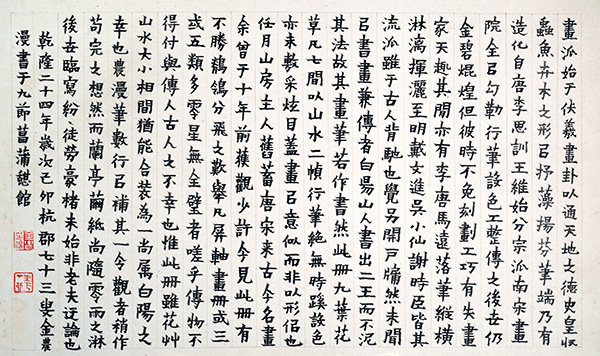 畫派始于伏羲畫卦以通天地之德史皇收
蟲魚卉木之形㠯抒藻揚芬筆端乃有
造化自唐李思訓王維始分宗派南宋畫
院全㠯勾勒行筆設色工整傳之後世仍
金碧焜煌但彼時不免刻劃工巧有失畫
家天趣其間亦有李唐馬遠落筆縱橫
淋漓揮灑至明戴文進吳小仙謝時臣皆其
流派雖于古人背馳也覺另開戶牖然未聞
㠯書畫兼傳者白陽山人書出二王而不泥
其法故其畫筆若作書然此冊九葉花
草凡七間以山水二幀行筆絕無時蹊設色
亦未敷采炫目蓋畫㠯意似而非以形侣也
任月山房主人舊蓄唐宋來古今名畫
余曾于十年前獲觀少許今見此冊有
不勝鶺鴒分飛之歎舉凡屏軸畫冊或三
或五類多零星無全璧者嗟乎傳物不
得付與傳人古人之不幸也惟此冊雖花艸
山水大小相間猶能合裝為一尚屬白陽之
幸也農漫筆數行㠯補其一令觀者稍作
苟完之想然而蘭亭繭紙尚隨零雨之淋
後世臨寫紛紛徒勞豪楮未始非老夫迂論也
乾隆二十四年歲次己卯杭郡七十三叟金農
漫書于九節菖蒲憩館